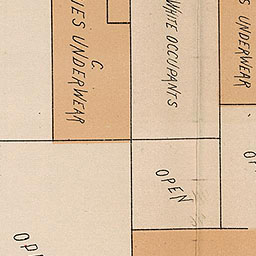 C.
UNDERWEAR
WHITE OCCUPANTS
UNDERWEAR
OPEN